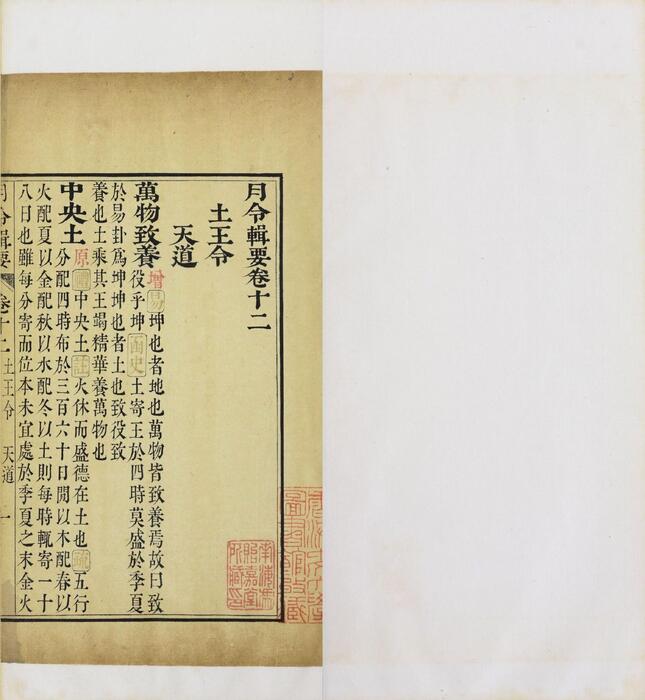 月令輯要卷十二
土王令
天道
萬物致養增易坤也者地也萬物皆致養焉故曰致
役乎坤函史土寄王於四時莫盛於季夏
於易卦爲坤坤也者土也致役致
養也土乘其王竭精華養萬物也
中央土原禮中央土註火休而盛德在土也疏五行
分配四時布於三百六十日閒以木配春以
火配夏以金配秋以水配冬以土則每時輒寄一十
八日也雖每分寄而位本未宜處於季夏之末金火
月令輯要 卷十二 土王令 天道 一